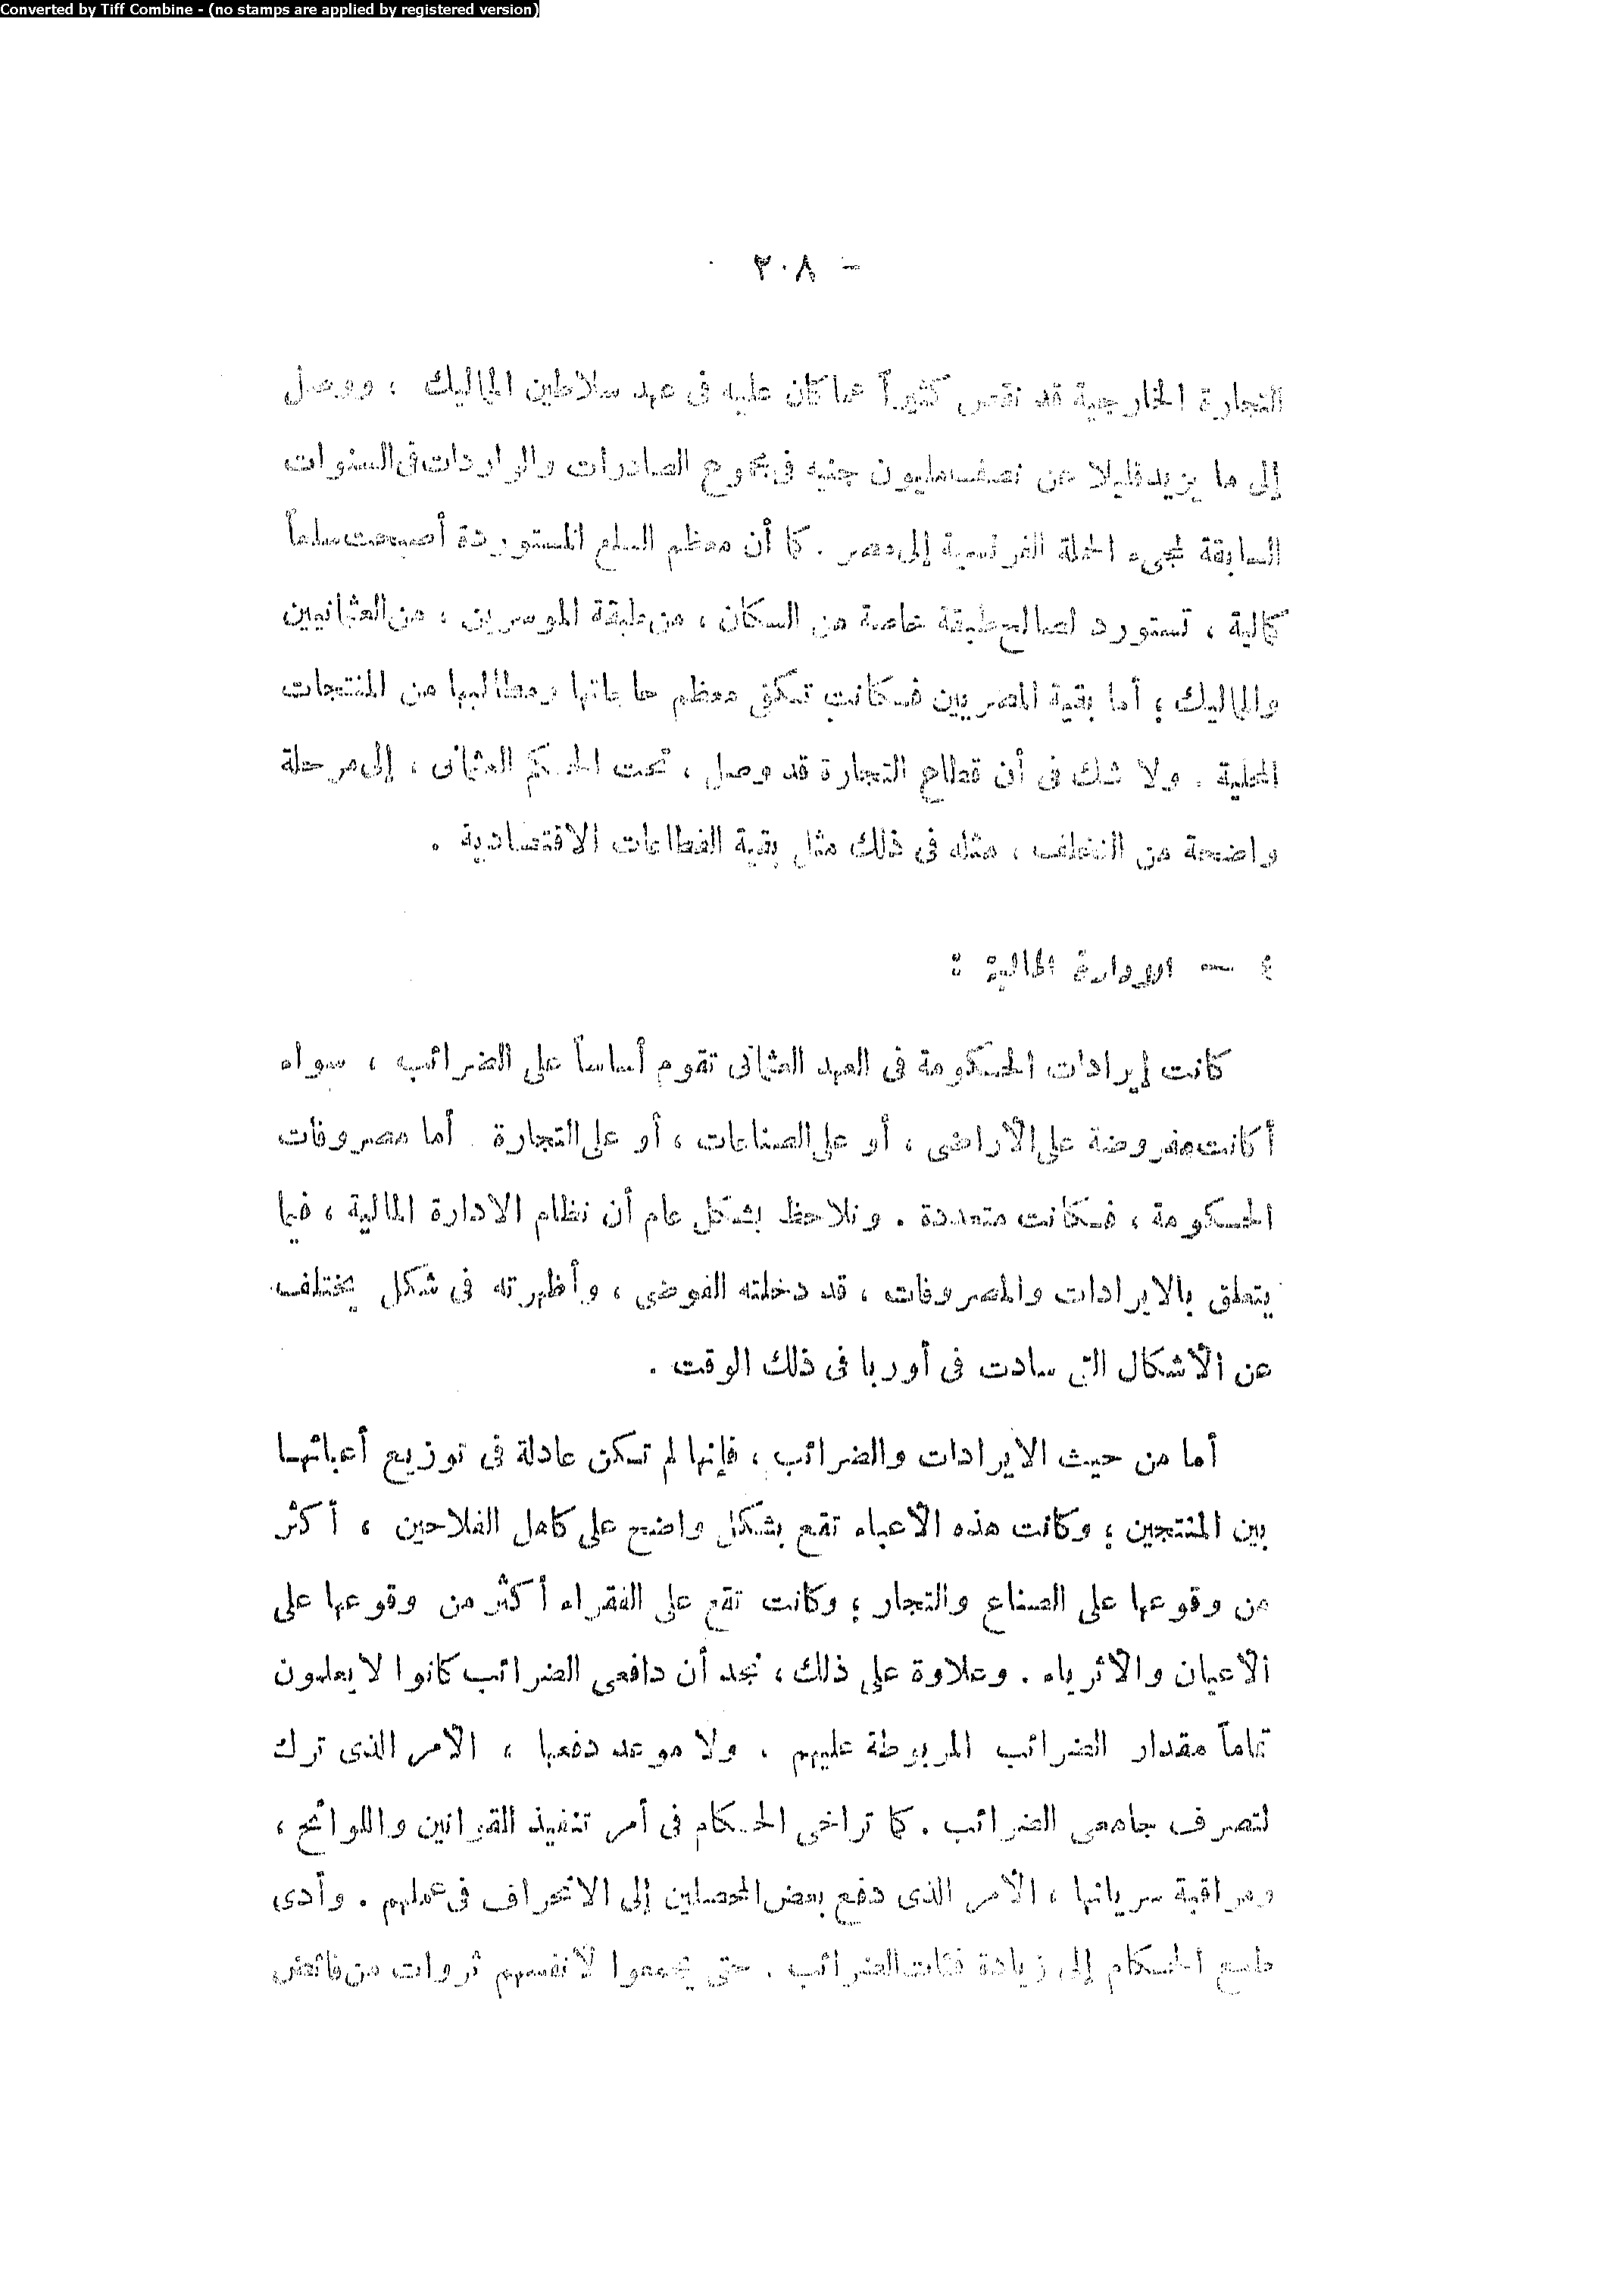 Converted by Tiff Combine - (no stamps are applied by registered version)
- ٢٠٨
التجارة الخارجية قد نقص كثيراً عما كان عليه فى عهد سلاطين المماليك ، ووصل
إلى ما يزيد قليلا عن نصف مليون جنيه فى مجموع الصادرات والواردات فى السنوات
السابقة لمجىء الحملة الفرنسية إلى مصر . كما أن معظم السلع المستوردة أصبحت سلعاً
كمالية ، تستورد لصالح طبقة خاصة من السكان ، من طبقة الموسرين ، من العثمانيين
والمماليك ؛ أما بقية المصريين فكانت تكفى معظم حاجاتها ومطالبها من المنتجات
المحلية . ولا شك فى أن قطاع التجارة قد وصل ، تحت الحكم العثمانى ، إلى مرحلة
واضحة من التخلف ، مثله فى ذلك مثل بقية القطاعات الاقتصادية .
٤ — الادارة المالية :
كانت إيرادات الحكومة فى العهد العثمانى تقوم أساساً على الضرائب ، سواء
أكانت مفروضة على الأراضى ، أو على الصناعات ، أو على التجارة . أما مصروفات
الحكومة ، فكانت متعددة . ونلاحظ بشكل عام أن نظام الادارة المالية ، فيما
يتعلق بالايرادات والمصروفات ، قد دخلته الفوضى ، وأظهرته فى شكل يختلف
عن الأشكال التى سادت فى أوربا فى ذلك الوقت .
أما من حيث الايرادات والضرائب ، فإنها لم تكن عادلة فى توزيع أعبائها
بين المنتجين ؛ وكانت هذه الأعباء تقع بشكل واضح على كاهل الفلاحين ، أكثر
من وقوعها على الصناع والتجار ؛ وكانت تقع على الفقراء أكثر من وقوعها على
الاعيان والاثرياء . وعلاوة على ذلك ، نجد أن دافعى الضرائب كانوا لا يعلمون
تماماً مقدار الضرائب المربوطة عليهم ، ولا موعد دفعها ، الأمر الذى ترك
لتصرف جامعى الضرائب . كما تراخى الحكام فى أمر تنفيذ القوانين واللوائح ،
ومراقبة سريانها ، الأمر الذى دفع بعض المحصلين إلى الانحراف فى عملهم . وأدى
طمع الحكام إلى زيادة فئات الضرائب . حتى يجمعوا لأنفسهم ثروات من فائض